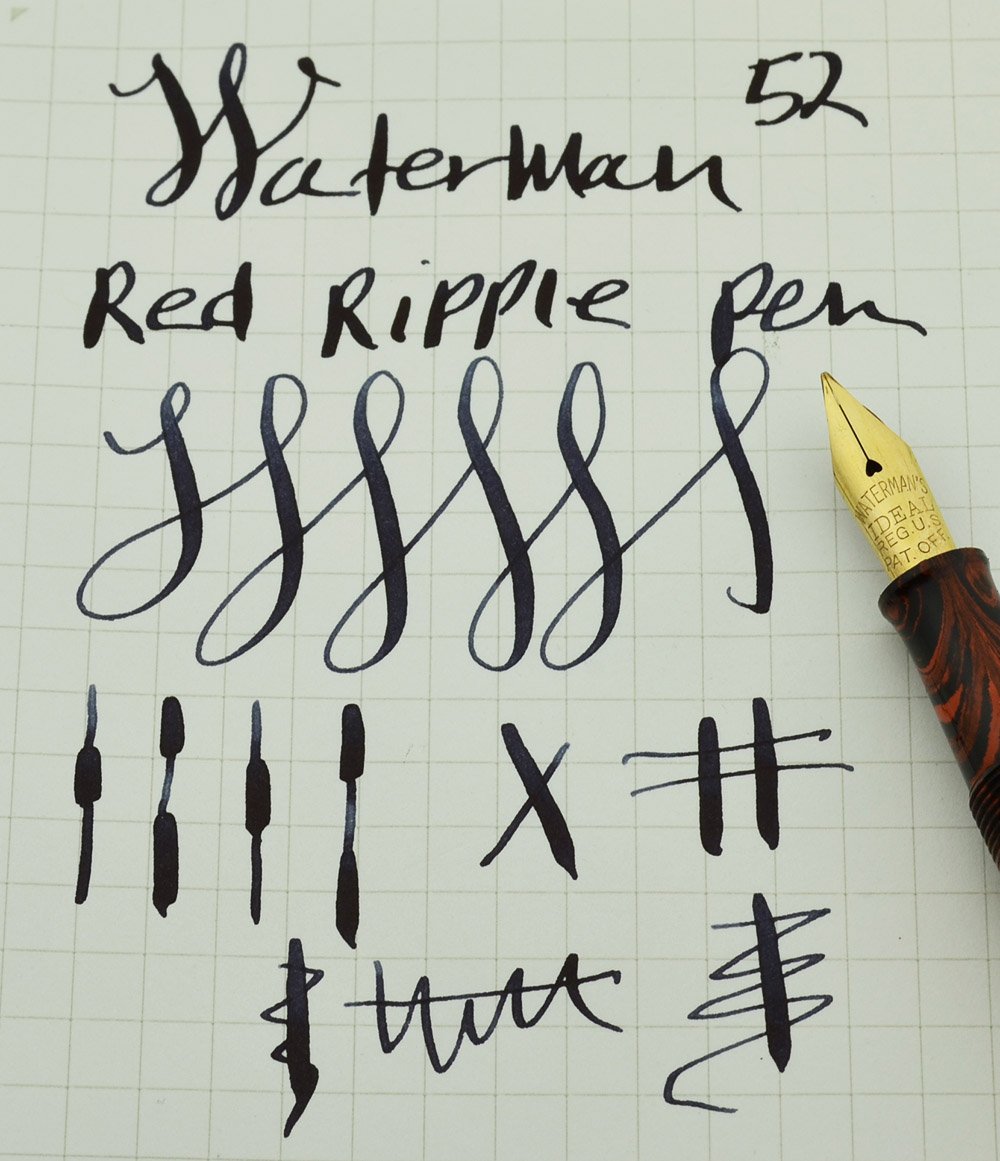 Waterman 52
Red Ripple pen
WATERMAN'S
IDEAL
REG.U.S.
PAT. OFF.
X